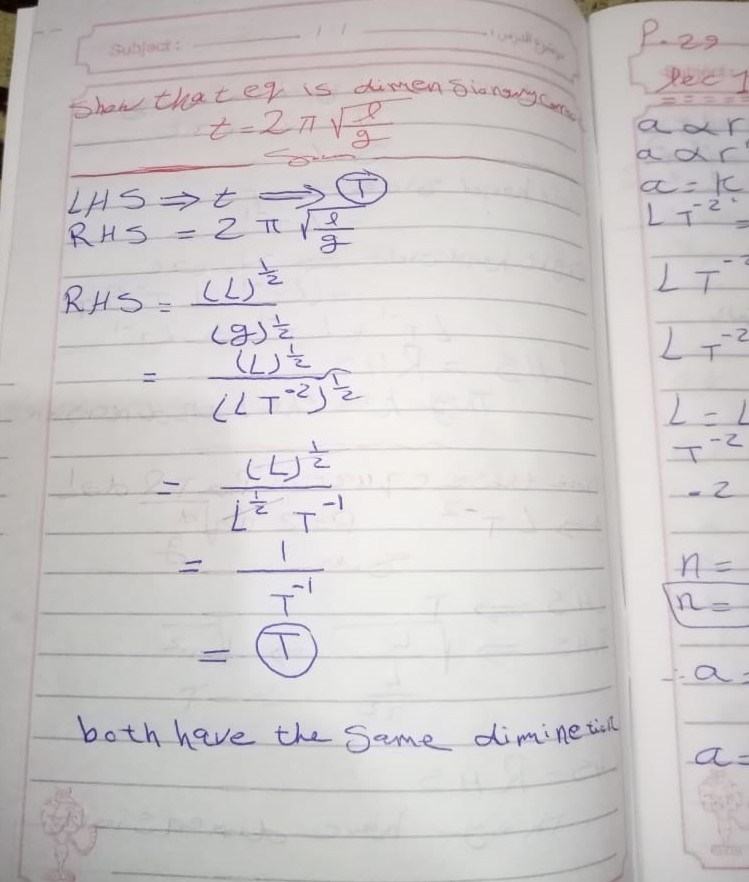 Subject: / / موضوع الدرس:
Show that eq is dimensionary
t = 2 π √(l/g)
LHS ⇒ t ⇒ T
RHS = 2 π √(l/g)
RHS = (L)^½ / (g)^½
= (L)^½ / (L T⁻²)^½
= (L)^½ / L^½ T⁻¹
= 1 / T⁻¹
= T
both have the same diminetion
P. 29
lec 1
a α r
a α r
a = k
L T⁻² =
L T⁻²
L T⁻²
L = L
T⁻²
-2
n =
n =
∴ a =
a =